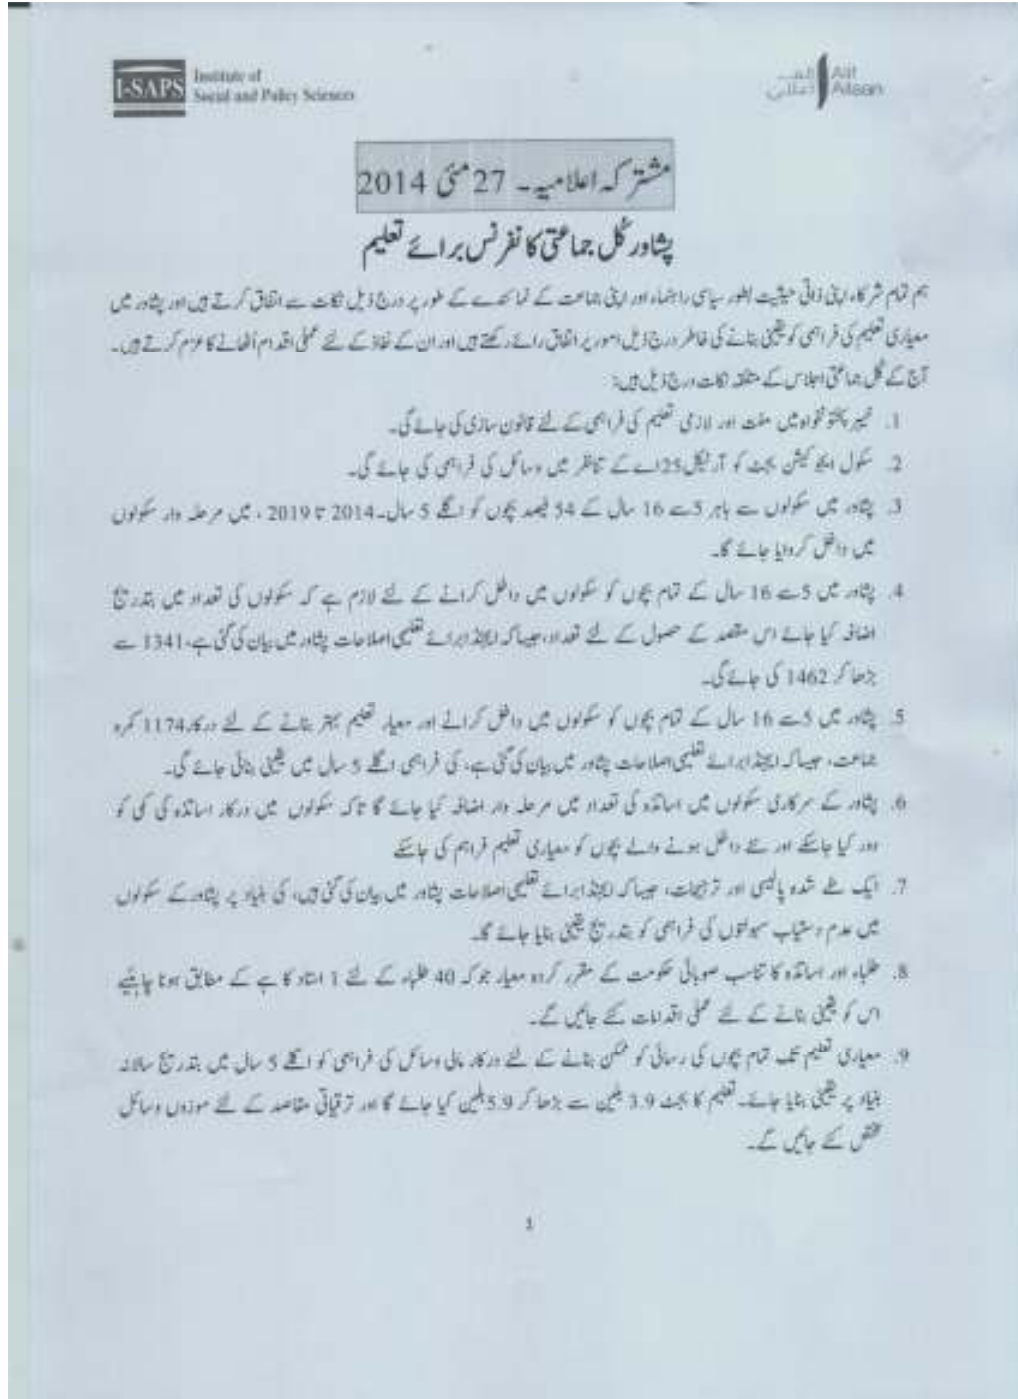 I-SAPS
Institute of
Social and Policy Sciences
الف
اعلان
Alif
Ailaan
مشترکہ اعلامیہ۔ 27 مئی 2014
پشاور کُل جماعتی کانفرنس برائے تعلیم
ہم تمام شرکاء، اپنی ذاتی حیثیت بطور سیاسی راہنماء اور اپنی جماعت کے نمائندے کے طور پر درج ذیل نکات سے اتفاق کرتے ہیں اور پشاور میں
معیاری تعلیم کی فراہمی کو یقینی بنانے کی خاطر درج ذیل امور پر اتفاق رائے رکھتے ہیں اور ان کے نفاذ کے لئے عملی اقدام اُٹھانے کا عزم کرتے ہیں۔
آج کے کُل جماعتی اجلاس کے متفقہ نکات درج ذیل ہیں:
1. خیبر پختونخواہ میں مفت اور لازمی تعلیم کی فراہمی کے لئے قانون سازی کی جائے گی۔
2. سکول ایجوکیشن بجٹ کو آرٹیکل 25اے کے تناظر میں وسائل کی فراہمی کی جائے گی۔
3. پشاور میں سکولوں سے باہر 5سے 16 سال کے 54 فیصد بچوں کو اگلے 5 سال۔2014 تا 2019 ، میں مرحلہ وار سکولوں
میں داخل کروایا جائے گا۔
4. پشاور میں 5سے 16 سال کے تمام بچوں کو سکولوں میں داخل کرانے کے لئے لازم ہے کہ سکولوں کی تعداد میں بتدریج
اضافہ کیا جائے اس مقصد کے حصول کے لئے تعداد، جیسا کہ ایجنڈا برائے تعلیمی اصلاحات پشاور میں بیان کی گئی ہے، 1341 سے
بڑھا کر 1462 کی جائے گی۔
5. پشاور میں 5سے 16 سال کے تمام بچوں کو سکولوں میں داخل کرانے اور معیار تعلیم بہتر بنانے کے لئے درکار 1174 کمرہ
جماعت، جیسا کہ ایجنڈا برائے تعلیمی اصلاحات پشاور میں بیان کی گئی ہے، کی فراہمی اگلے 5 سال میں یقینی بنائی جائے گی۔
6. پشاور کے سرکاری سکولوں میں اساتذہ کی تعداد میں مرحلہ وار اضافہ کیا جائے گا تاکہ سکولوں میں درکار اساتذہ کی کمی کو
دور کیا جاسکے اور نئے داخل ہونے والے بچوں کو معیاری تعلیم فراہم کی جاسکے
7. ایک طے شدہ پالیسی اور ترجیحات، جیسا کہ ایجنڈا برائے تعلیمی اصلاحات پشاور میں بیان کی گئی ہیں، کی بنیاد پر پشاور کے سکولوں
میں عدم دستیاب سہولتوں کی فراہمی کو بتدریج یقینی بنایا جائے گا۔
8. طلباء اور اساتذہ کا تناسب صوبائی حکومت کے مقرر کردہ معیار جو کہ 40 طلباء کے لئے 1 استاد کا ہے کے مطابق ہونا چاہئیے
اس کو یقینی بنانے کے لئے عملی اقدامات کئے جائیں گے۔
9. معیاری تعلیم تک تمام بچوں کی رسائی کو ممکن بنانے کے لئے درکار مالی وسائل کی فراہمی کو اگلے 5 سال میں بتدریج سالانہ
بنیاد پر یقینی بنایا جائے۔ تعلیم کا بجٹ 3.9 بلین سے بڑھا کر 5.9بلین کیا جائے گا اور ترقیاتی مقاصد کے لئے موزوں وسائل
مختص کئے جائیں گے۔
1